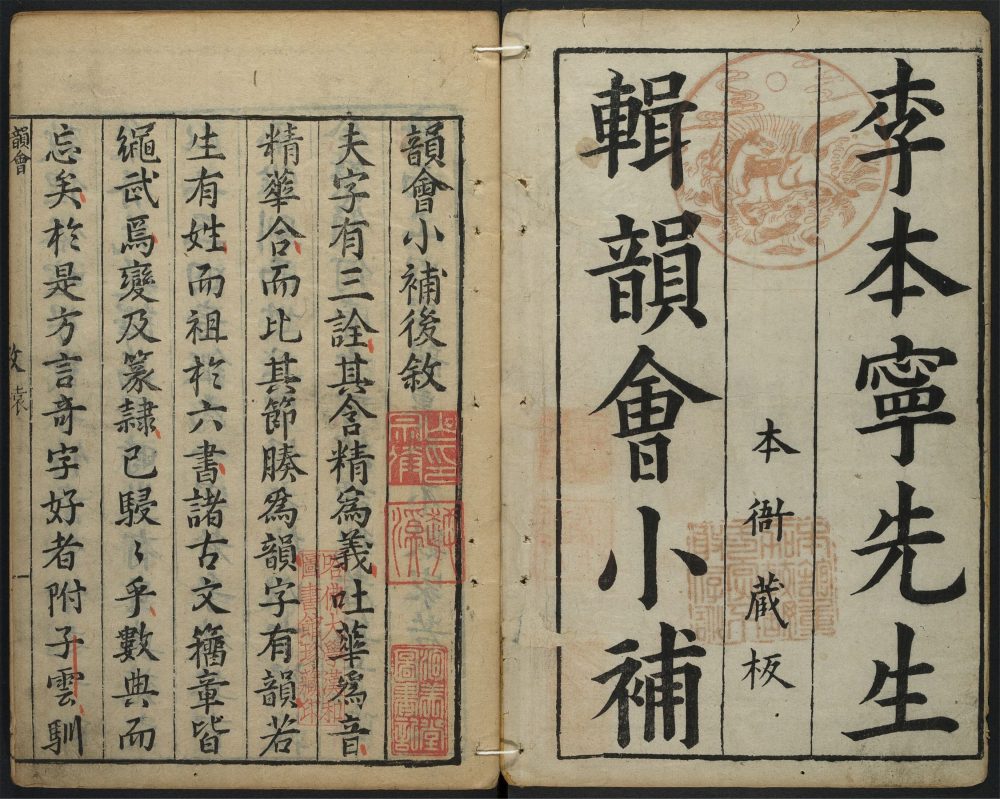 李本寧先生
本衙蔵板
輯韻會小補
韻會小補後敘
夫字有三詮其含精為義吐華為音
精華合而比其節腠為韻字有韻若
生有姓而祖於六書諸古文籀章皆
繩武焉變及篆隷已駸〻乎數典而
忘矣於是方言奇字好者附子雲馴
韻會